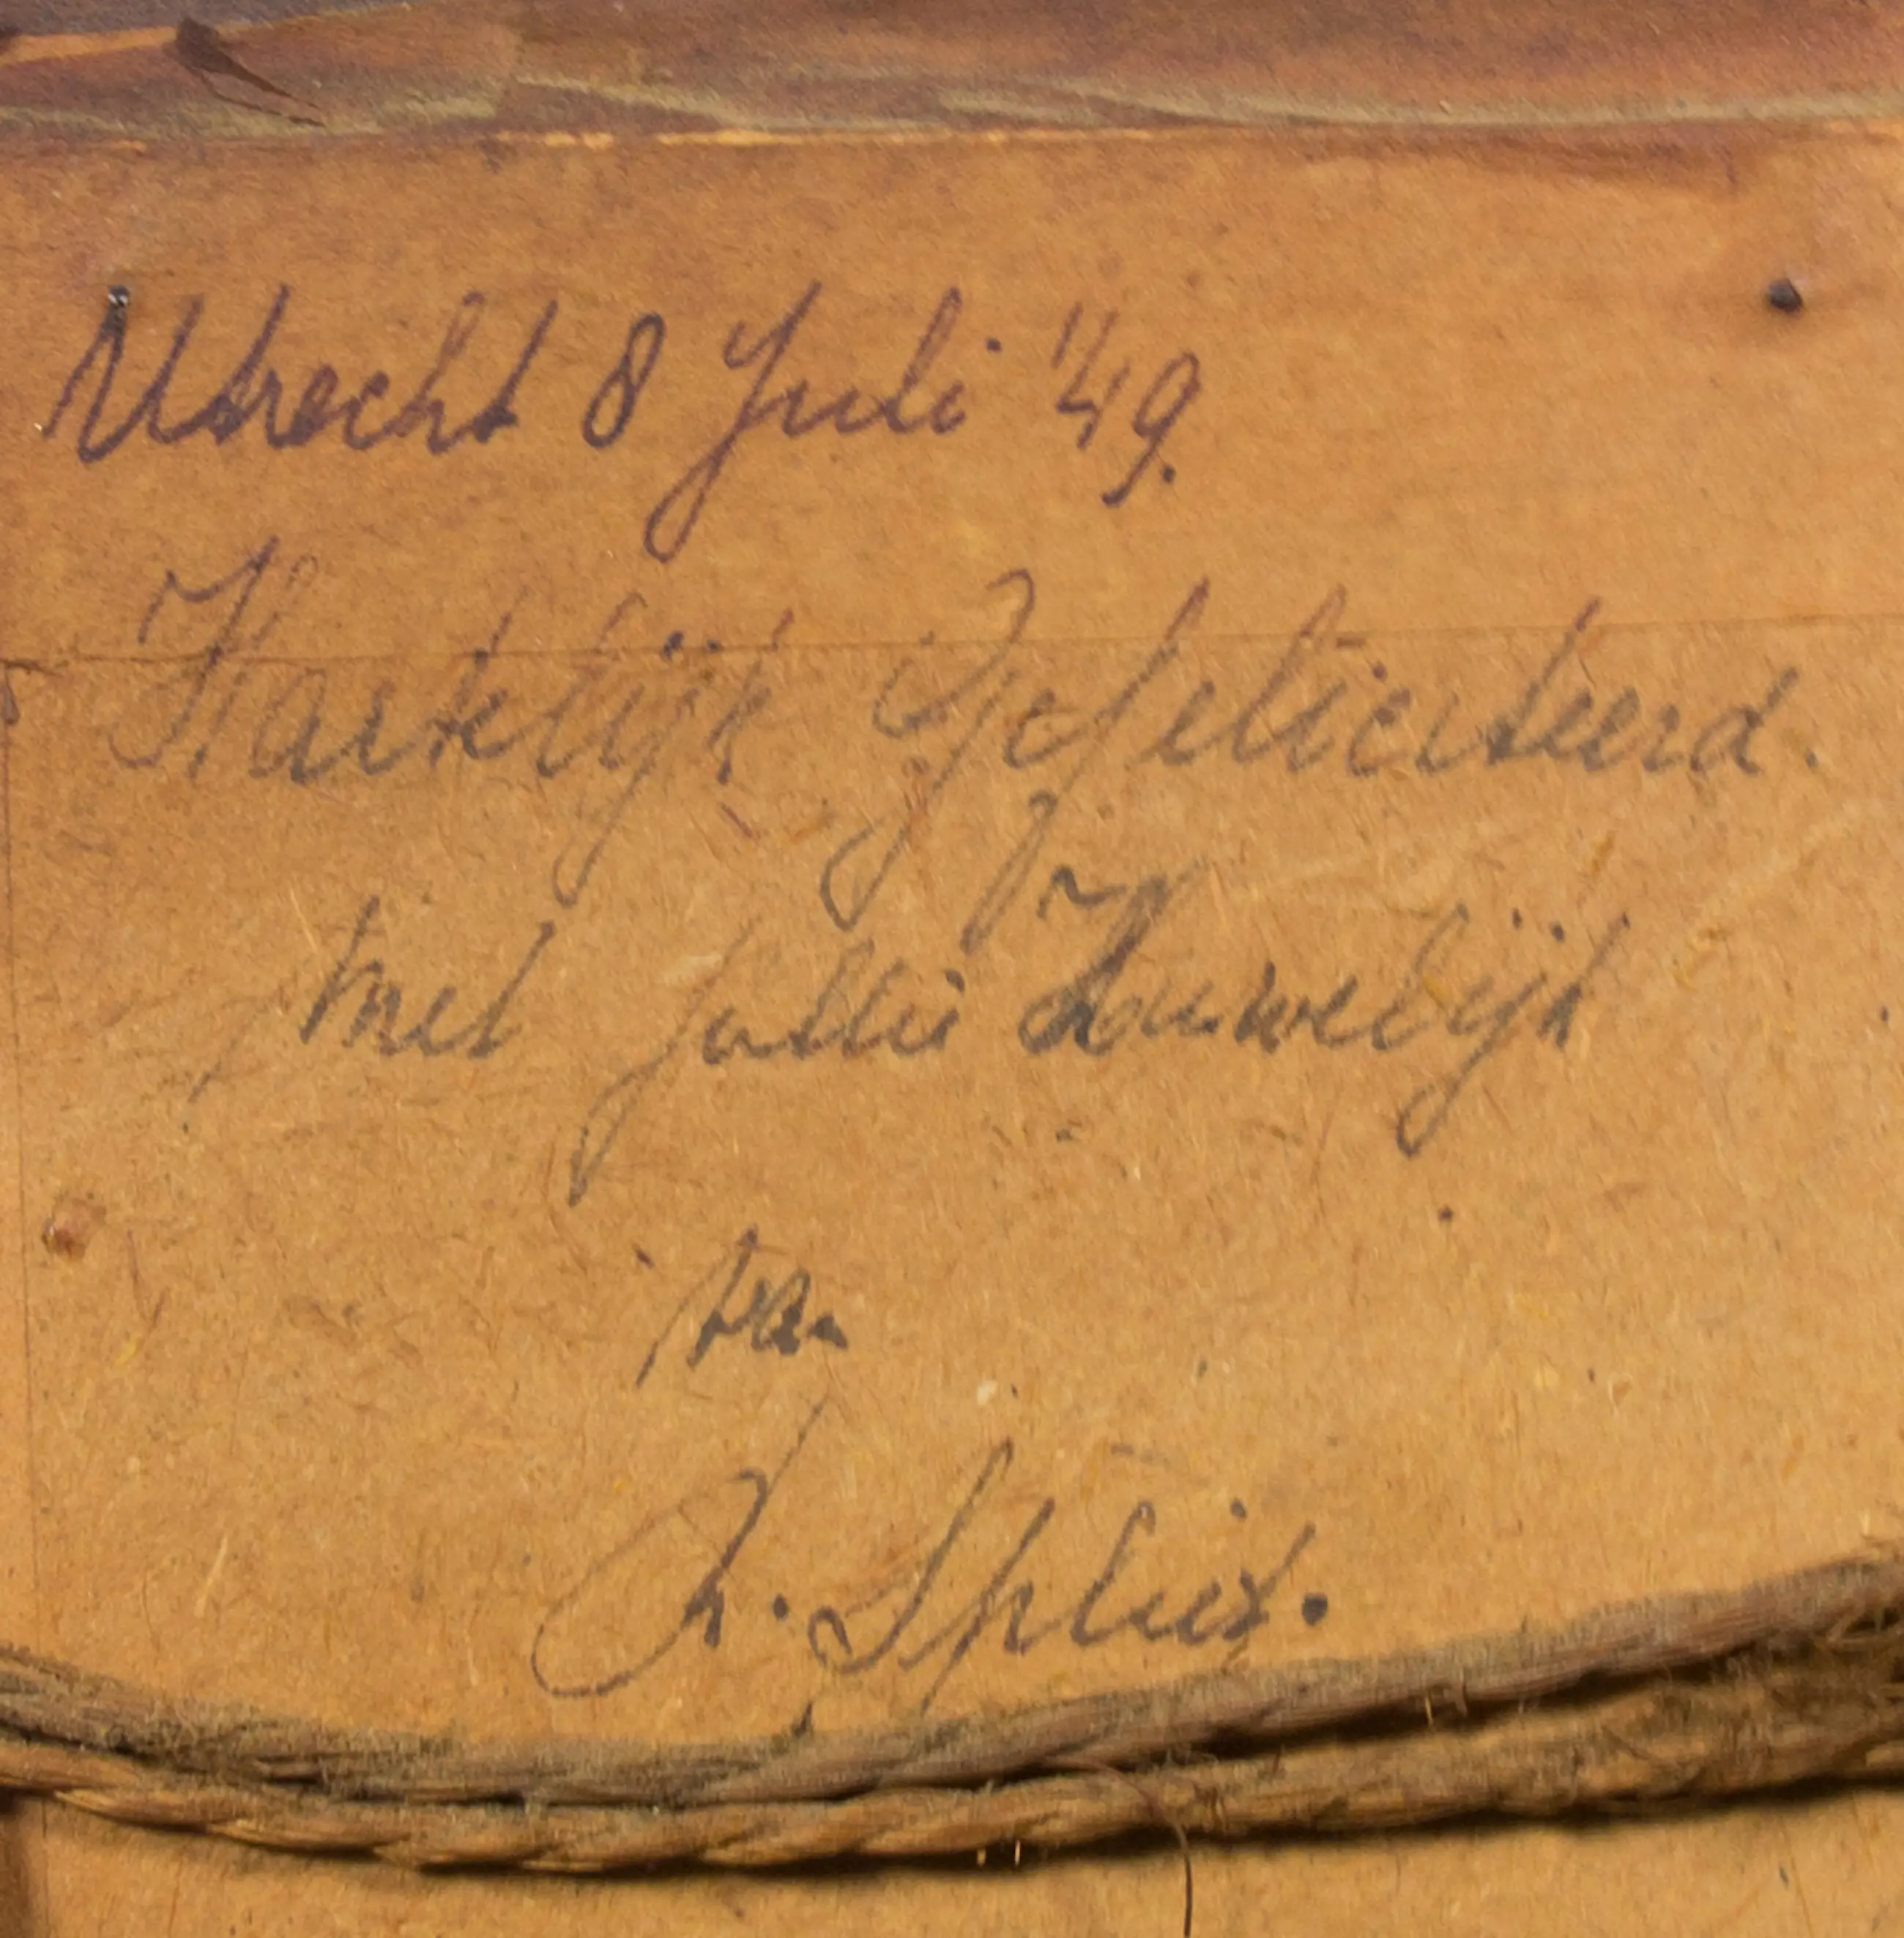 Utrecht 8 Juli '49.
Hartelijk Gefeliciteerd.
met jullie Houwelijk
van